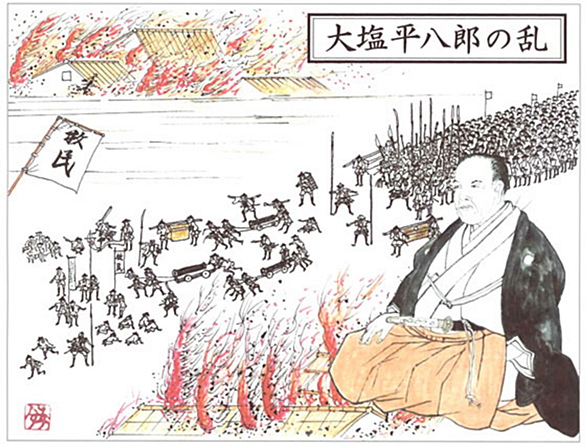 大塩平八郎の乱
救民
救民